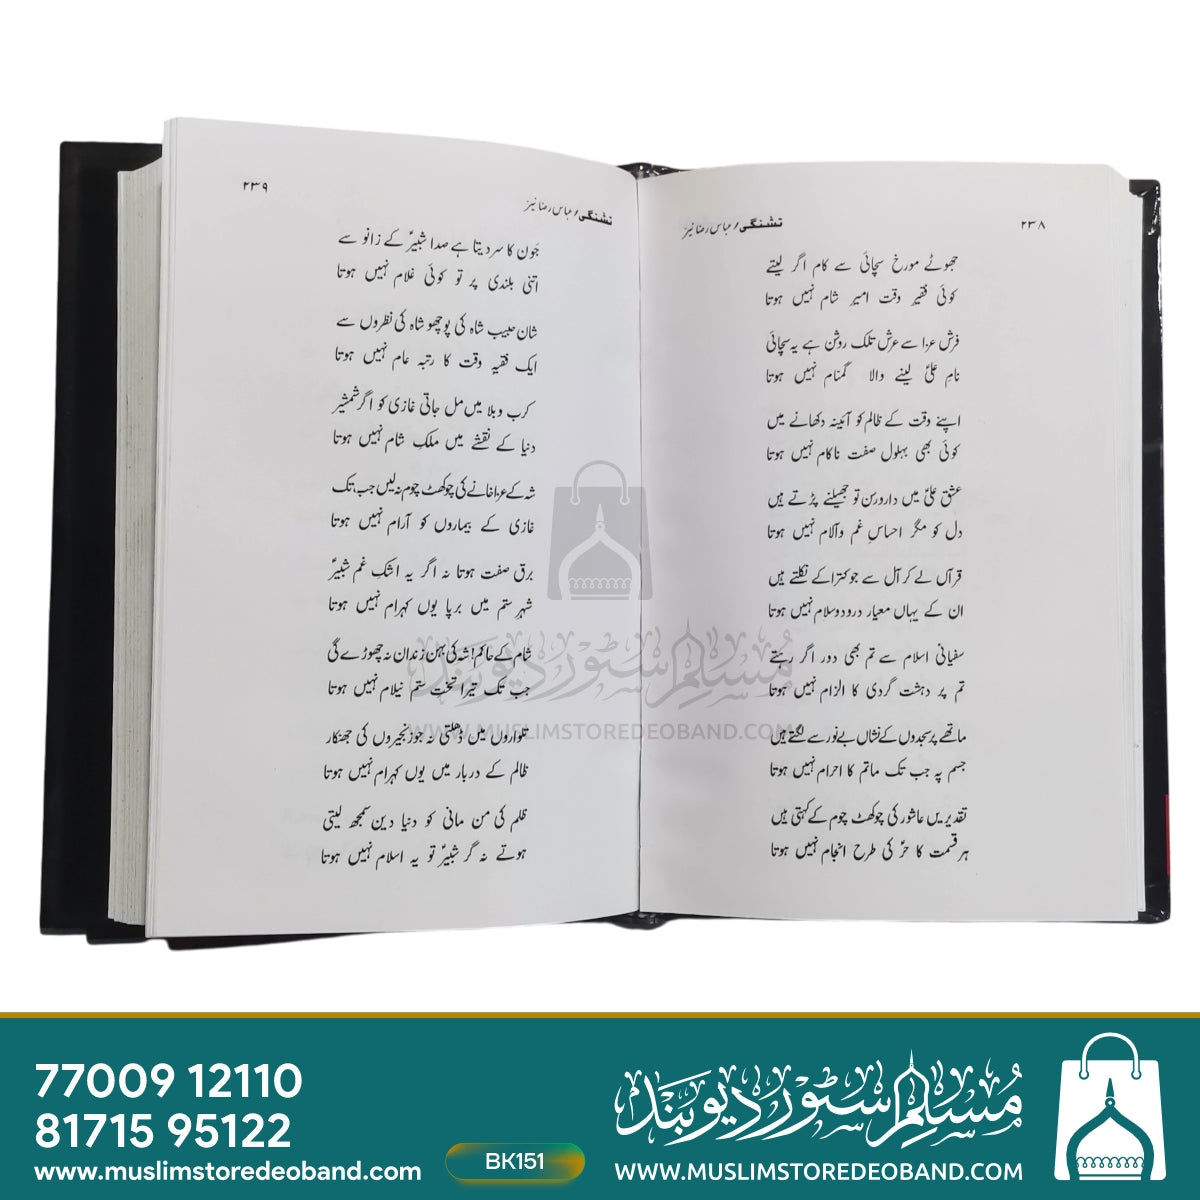 ۲۳۸
تشنگی / عباس رضا نیّر
جھوٹے مورخ سچائی سے کام اگر لیتے
کوئی فقیر وقت امیر شام نہیں ہوتا
فرش عزا سے عرش تلک روشن ہے یہ سچائی
نامِ علیؑ لینے والا گمنام نہیں ہوتا
اپنے وقت کے ظالم کو آئینہ دکھانے میں
کوئی بھی بہلول صفت ناکام نہیں ہوتا
عشق علیؑ میں دار و رسن تو جھیلنے پڑتے ہیں
دل کو مگر احساسِ غم و آلام نہیں ہوتا
قرآں لے کر آل سے جو کترا کے نکلتے ہیں
ان کے یہاں معیار درود و سلام نہیں ہوتا
سفیانی اسلام سے تم بھی دور اگر رہتے
تم پر دہشت گردی کا الزام نہیں ہوتا
ماتھے پر سجدوں کے نشاں بے نور سے لگتے ہیں
جسم پہ جب تک ماتم کا احرام نہیں ہوتا
تقدیریں عاشور کی چوکھٹ چوم کے کہتی ہیں
ہر قسمت کا حرؑ کی طرح انجام نہیں ہوتا
۲۳۹
تشنگی / عباس رضا نیّر
جَون کا سر دیتا ہے صدا شبیرؑ کے زانو سے
اتنی بلندی پر تو کوئی غلام نہیں ہوتا
شان حبیب شاہ کی پوچھو شاہ کی نظروں سے
ایک فقیہ وقت کا رتبہ عام نہیں ہوتا
کرب و بلا میں مل جاتی غازی کو اگر شمشیر
دنیا کے نقشے میں ملکِ شام نہیں ہوتا
شہ کے عزاخانے کی چوکھٹ چوم نہ لیں جب تک
غازی کے بیماروں کو آرام نہیں ہوتا
برق صفت ہوتا نہ اگر یہ اشکِ غم شبیرؑ
شہرِ ستم میں برپا یوں کہرام نہیں ہوتا
شام کے حاکم! شہ کی بہن زندان نہ چھوڑے گی
جب تک تیرا تختِ ستم نیلام نہیں ہوتا
تلواروں میں ڈھلتی نہ جو زنجیروں کی جھنکار
ظالم کے دربار میں یوں کہرام نہیں ہوتا
ظلم کی من مانی کو دنیا دین سمجھ لیتی
ہوتے نہ گر شبیرؑ تو یہ اسلام نہیں ہوتا
مسلم سٹور دیوبند
WWW.MUSLIMSTOREDEOBAND.COM
77009 12110
81715 95122
www.muslimstoredeoband.com
BK151
مسلم سٹور دیوبند
WWW.MUSLIMSTOREDEOBAND.COM